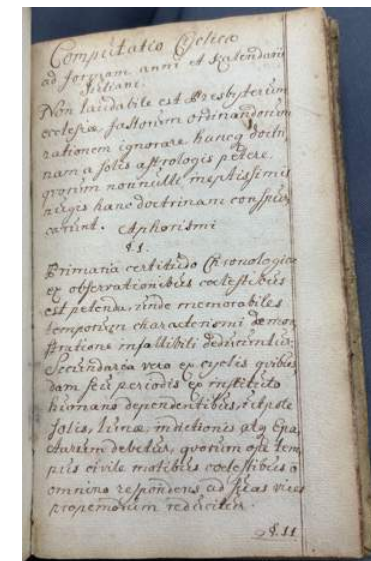 Computatio Cyclica
ad formam anni et Kalendarii
Juliani.
Non laudabile est Presbyterum
ecclesiæ fastorum ordinandorum
rationem ignorare hancq doctri
nam a solis astrologis petere.
qvorum nonnulli ineptissimis
nugis hanc doctrinam conspur
carunt. Aphorismi
§.1.
Primaria certitudo Chronologica
ex observationibus coelestibus
est petenda, unde memorabiles
temporum characterismi demon
stratione infallibili deducuntur.
Secundaria vero ex cyclis qvibus
dam seu periodis ex instituto
humano dependentibus, utpote
solis, lunæ, indictionis atq Epa
ctarum debetur, qvorum ope tem
pus civile motibus coelestibus
omnino respondens ad suas vices
propemodum reducitur.
§.11